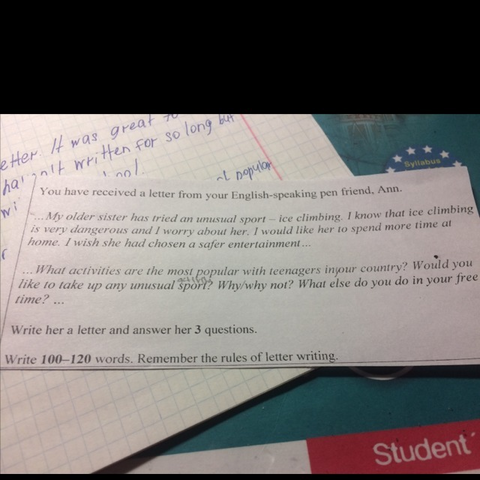 etter. It was great to
hav n't written for so long but
wi
popular
Syllabus
You have received a letter from your English-speaking pen friend, Ann.
"...My older sister has tried an unusual sport – ice climbing. I know that ice climbing
is very dangerous and I worry about her. I would like her to spend more time at
home. I wish she had chosen a safer entertainment...
...What activities are the most popular with teenagers in your country? Would you
like to take up any unusual sport? Why/why not? What else do you do in your free
time? ...
Write her a letter and answer her 3 questions.
Write 100–120 words. Remember the rules of letter writing.
Student